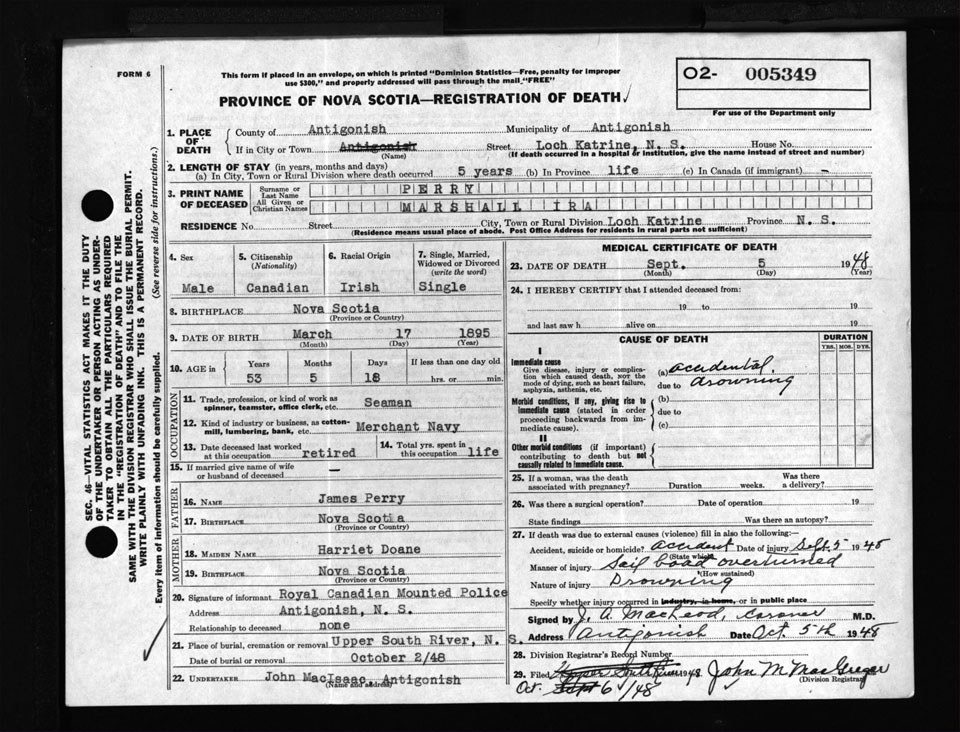 FORM 6
This form if placed in an envelope, on which is printed "Dominion Statistics—Free, penalty for improper
use $300," and properly addressed will pass through the mail "FREE"
PROVINCE OF NOVA SCOTIA—REGISTRATION OF DEATH
O2- 005349
For use of the Department only
1. PLACE OF DEATH
County of Antigonish Municipality of Antigonish
If in City or Town Antigonish Street Loch Katrine, N. S. House No.
(Name) (If death occurred in a hospital or institution, give the name instead of street and number)
2. LENGTH OF STAY (in years, months and days)
(a) In City, Town or Rural Division where death occurred 5 years (b) In Province life (c) In Canada (if immigrant) -
3. PRINT NAME OF DECEASED
Surname or Last Name PERRY
All Given or Christian Names MARSHALL IRA
RESIDENCE No. Street City, Town or Rural Division Loch Katrine Province N. S.
(Residence means usual place of abode. Post Office Address for residents in rural parts not sufficient)
4. Sex
Male
5. Citizenship
(Nationality)
Canadian
6. Racial Origin
Irish
7. Single, Married,
Widowed or Divorced
(write the word)
Single
8. BIRTHPLACE Nova Scotia
(Province or Country)
9. DATE OF BIRTH March 17 1895
(Month) (Day) (Year)
10. AGE in Years Months Days If less than one day old
53 5 18 hrs. or min.
OCCUPATION
11. Trade, profession, or kind of work as
spinner, teamster, office clerk, etc. Seaman
12. Kind of industry or business, as cotton-
mill, lumbering, bank, etc. Merchant Navy
13. Date deceased last worked
at this occupation retired
14. Total yrs. spent in
this occupation life
15. If married give name of wife
or husband of deceased —
FATHER
16. NAME James Perry
17. BIRTHPLACE Nova Scotia
(Province or Country)
MOTHER
18. MAIDEN NAME Harriet Doane
19. BIRTHPLACE Nova Scotia
(Province or Country)
20. Signature of informant Royal Canadian Mounted Police
Address Antigonish, N. S.
Relationship to deceased none
21. Place of burial, cremation or removal Upper South River, N. S.
Date of burial or removal October 2/48
22. UNDERTAKER John MacIsaac, Antigonish
(Name and address)
MEDICAL CERTIFICATE OF DEATH
23. DATE OF DEATH Sept. 5 1948
(Month) (Day) (Year)
24. I HEREBY CERTIFY that I attended deceased from:
19 to 19
and last saw h alive on 19
CAUSE OF DEATH
DURATION
YRS. MOS. DYS.
I
Immediate cause
Give disease, injury or complica-
tion which caused death, NOT the
mode of dying, such as heart failure,
asphyxia, asthenia, etc.
(a) accidental
due to drowning
Morbid conditions, if any, giving rise to
immediate cause (stated in order
proceeding backwards from im-
mediate cause).
(b)
due to
(c)
II
Other morbid conditions (if important)
contributing to death but not
causally related to immediate cause.
25. If a woman, was the death
associated with pregnancy? Duration weeks. Was there
a delivery?
26. Was there a surgical operation? Date of operation 19
State findings Was there an autopsy?
27. If death was due to external causes (violence) fill in also the following:—
Accident, suicide or homicide? accident Date of injury Sept 5 1948
(State which)
Manner of injury Sail boat overturned
(How sustained)
Nature of injury Drowning
Specify whether injury occurred in industry, in home, or in public place
Signed by J. A. MacLeod, Coroner M.D.
Address Antigonish Date Oct 5th 1948
28. Division Registrar's Record Number
29. Filed Upper South River 1948 John M MacGregor
(Division Registrar)
Oct. Sept 6 /48
SEC. 46—VITAL STATISTICS ACT MAKES IT THE DUTY
OF THE UNDERTAKER OR PERSON ACTING AS UNDER-
TAKER TO OBTAIN ALL THE PARTICULARS REQUIRED
IN THE "REGISTRATION OF DEATH" AND TO FILE THE
SAME WITH THE DIVISION REGISTRAR WHO SHALL ISSUE THE BURIAL PERMIT.
WRITE PLAINLY WITH UNFADING INK. THIS IS A PERMANENT RECORD.
Every item of information should be carefully supplied. (See reverse side for instructions.)